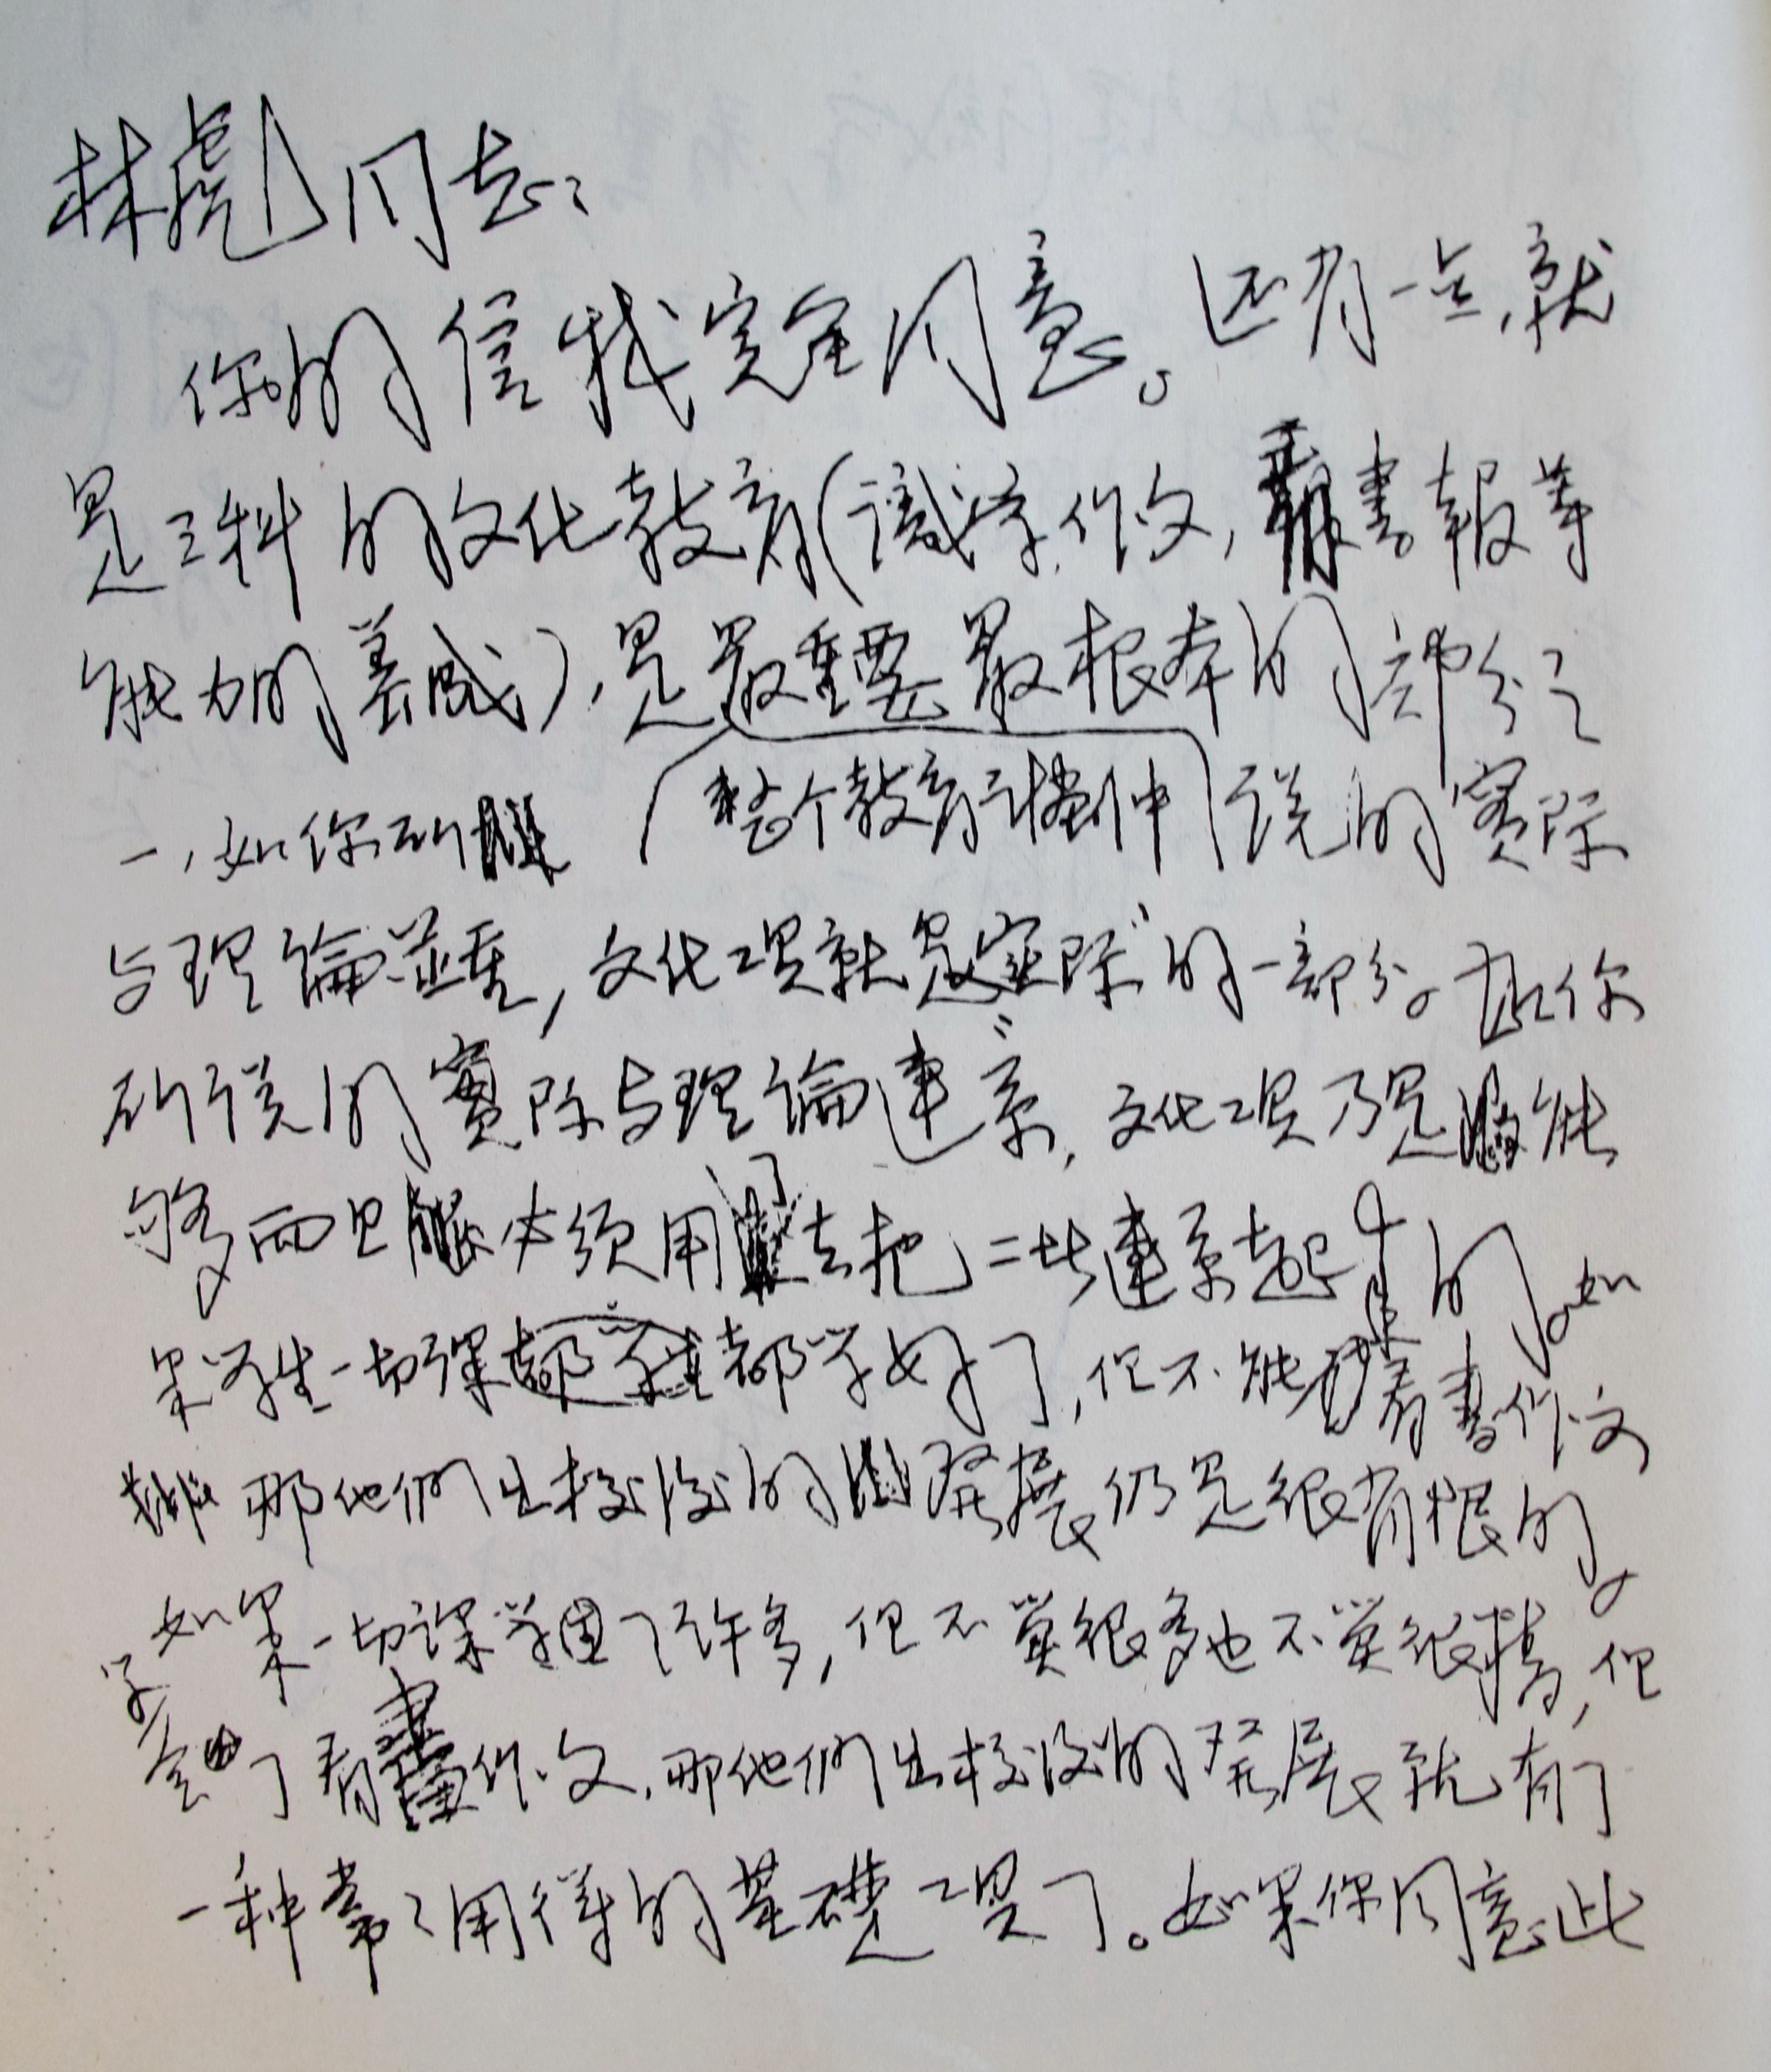 林彪同志：
你的信我完全同意。还有一点，就
是三科的文化教育（識字，作文，看書報等
能力的养成），是最重要最根本的部分之
整个教育計劃中
一，如你所說的實际
与理論並重，文化工具就是“实际”的一部分。在你
所說的實际与理論連系，文化工具乃是能
够而且必须用了去把二者連系起来的。如
果学生一切課都学好了，但不能看書作文
那他們出校後的發展仍是很有限的。
如果一切課学了許多，但不算很多也不算很精，但
学会了看書作文，那他們出校後的發展就有了
一种常常用得的基礎工具了。如果你同意此